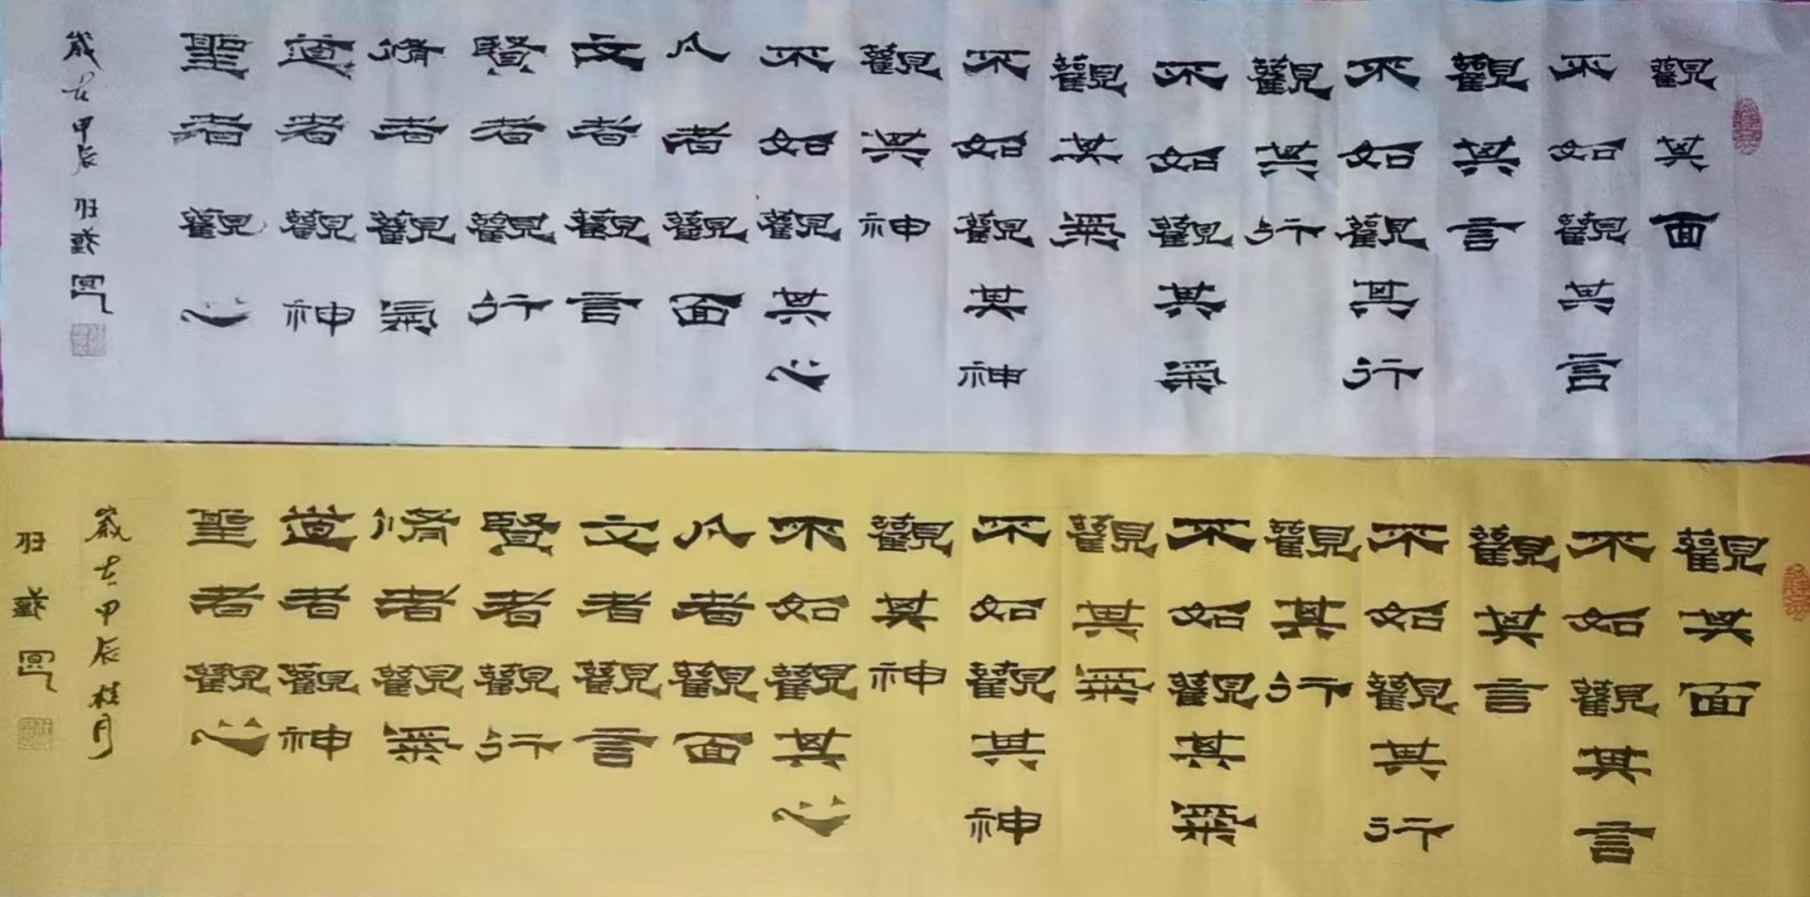 觀其面
不如觀其言
觀其言
不如觀其行
觀其行
不如觀其氣
觀其氣
不如觀其神
觀其神
不如觀其心
凡者觀面
文者觀言
賢者觀行
脩者觀氣
道者觀神
聖者觀心
歲在甲辰
觀其面
不如觀其言
觀其言
不如觀其行
觀其行
不如觀其氣
觀其氣
不如觀其神
觀其神
不如觀其心
凡者觀面
文者觀言
賢者觀行
脩者觀氣
道者觀神
聖者觀心
歲在甲辰桂月